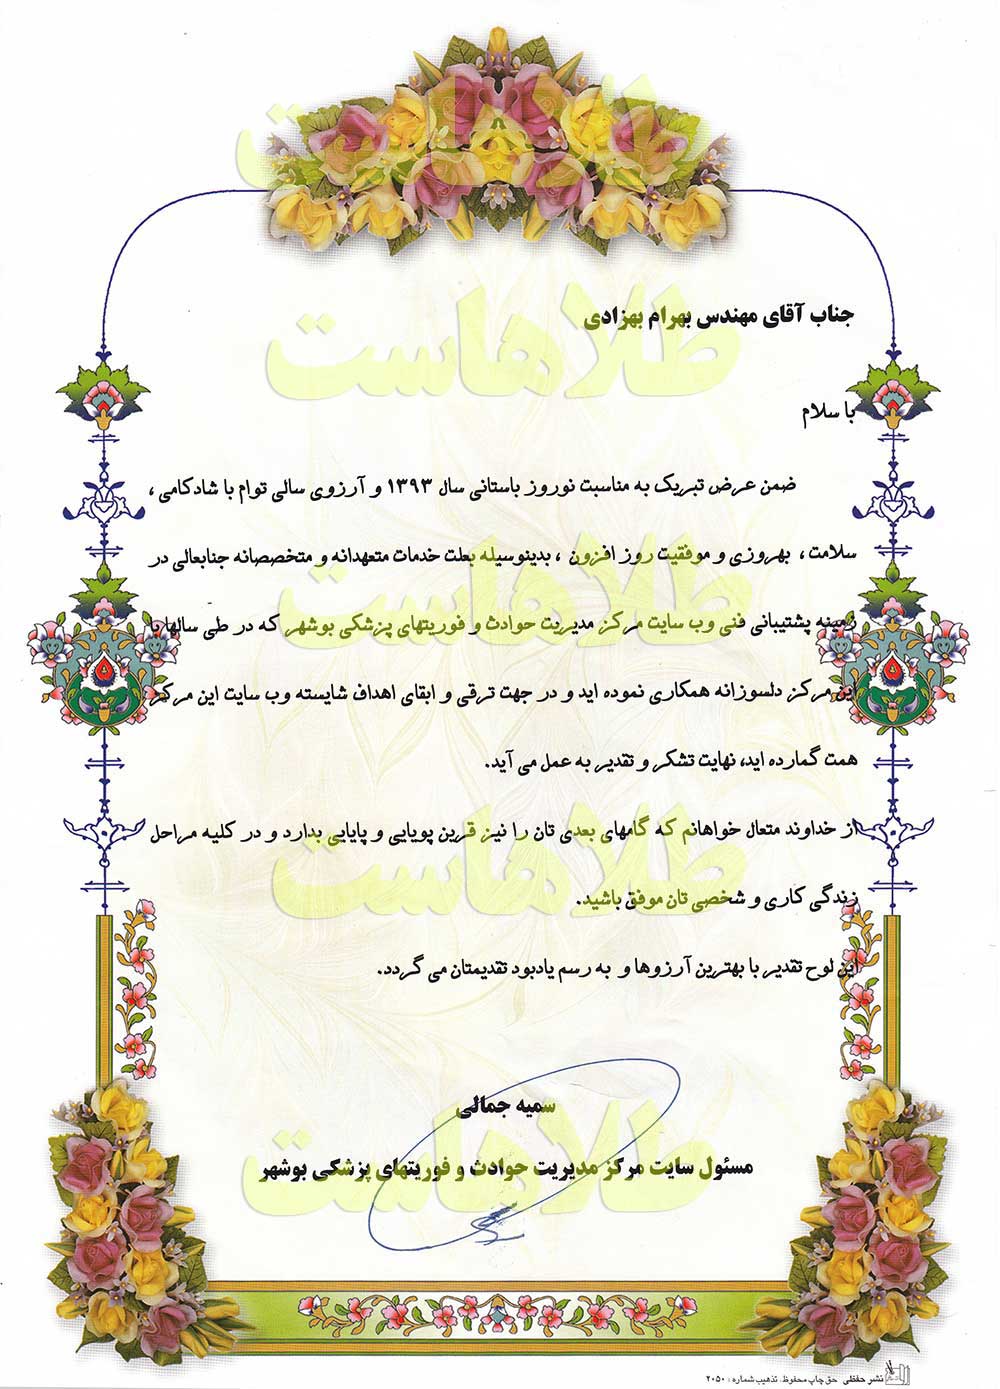 طلاهاست
جناب آقای مهندس بهرام بهزادی
طلاهاست
با سلام
ضمن عرض تبریک به مناسبت نوروز باستانی سال ۱۳۹۳ و آرزوی سالی توام با شادکامی ،
سلامت ، بهروزی و موفقیت روز افزون ، بدینوسیله بعلت خدمات متعهدانه و متخصصانه جنابعالی در
طلاهاست
زمینه پشتیبانی فنی وب سایت مرکز مدیریت حوادث و فوریتهای پزشکی بوشهر که در طی سالها با
این مرکز دلسوزانه همکاری نموده اید و در جهت ترقی و ابقای اهداف شایسته وب سایت این مرکز
همت گمارده اید، نهایت تشکر و تقدیر به عمل می آید.
از خداوند متعال خواهانم که گامهای بعدی تان را نیز قرین پویایی و پایایی بدارد و در کلیه مراحل
طلاهاست
زندگی کاری و شخصی تان موفق باشید.
این لوح تقدیر با بهترین آرزوها و به رسم یادبود تقدیمتان می گردد.
سمیه جمالی
طلاهاست
مسئول سایت مرکز مدیریت حوادث و فوریتهای پزشکی بوشهر
نشر حفظی حق چاپ محفوظ. تذهیب شماره : ۲۰۵۰